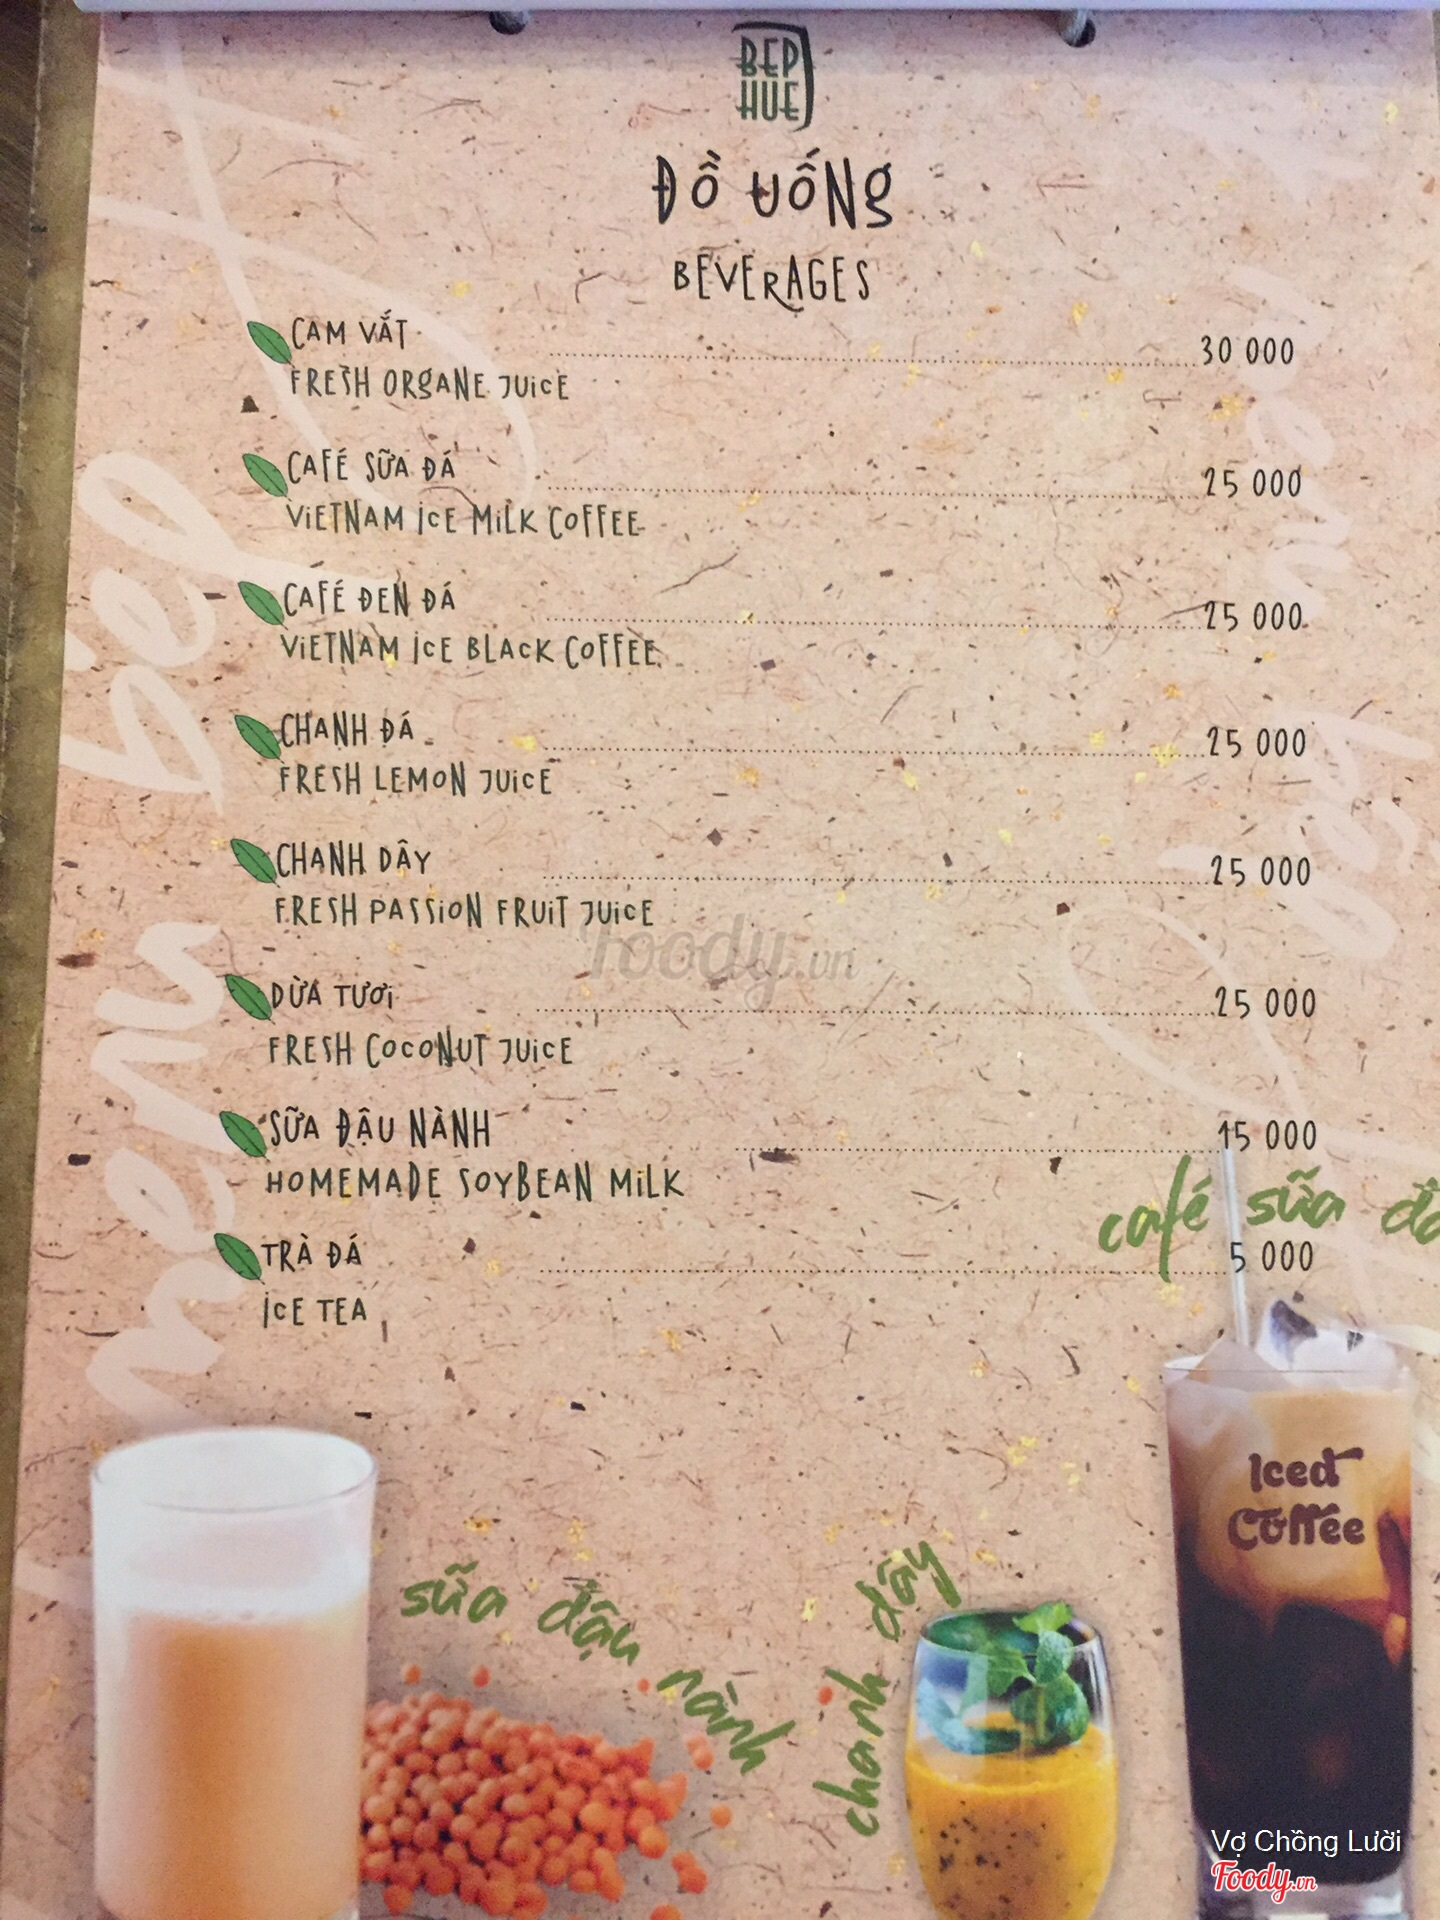 BEP
HUE
ĐỒ UỐNG
BEVERAGES
CAM VẮT
30 000
FRESH ORGANE JUICE
CAFÉ SỮA ĐÁ
25 000
VIETNAM ICE MILK COFFEE
CAFÉ ĐEN ĐÁ
25 000
VIETNAM ICE BLACK COFFEE
CHANH ĐÁ
25 000
FRESH LEMON JUICE
CHANH DÂY
25 000
FRESH PASSION FRUIT JUICE
Foody.vn
DỪA TƯƠI
25 000
FRESH COCONUT JUICE
SỮA ĐẬU NÀNH
15 000
HOMEMADE SOYBEAN MILK
café sữa đá
TRÀ ĐÁ
5 000
ICE TEA
menu bếp
Iced
Coffee
sữa đậu nành
chanh dây
Vợ Chồng Lười
Foody.vn